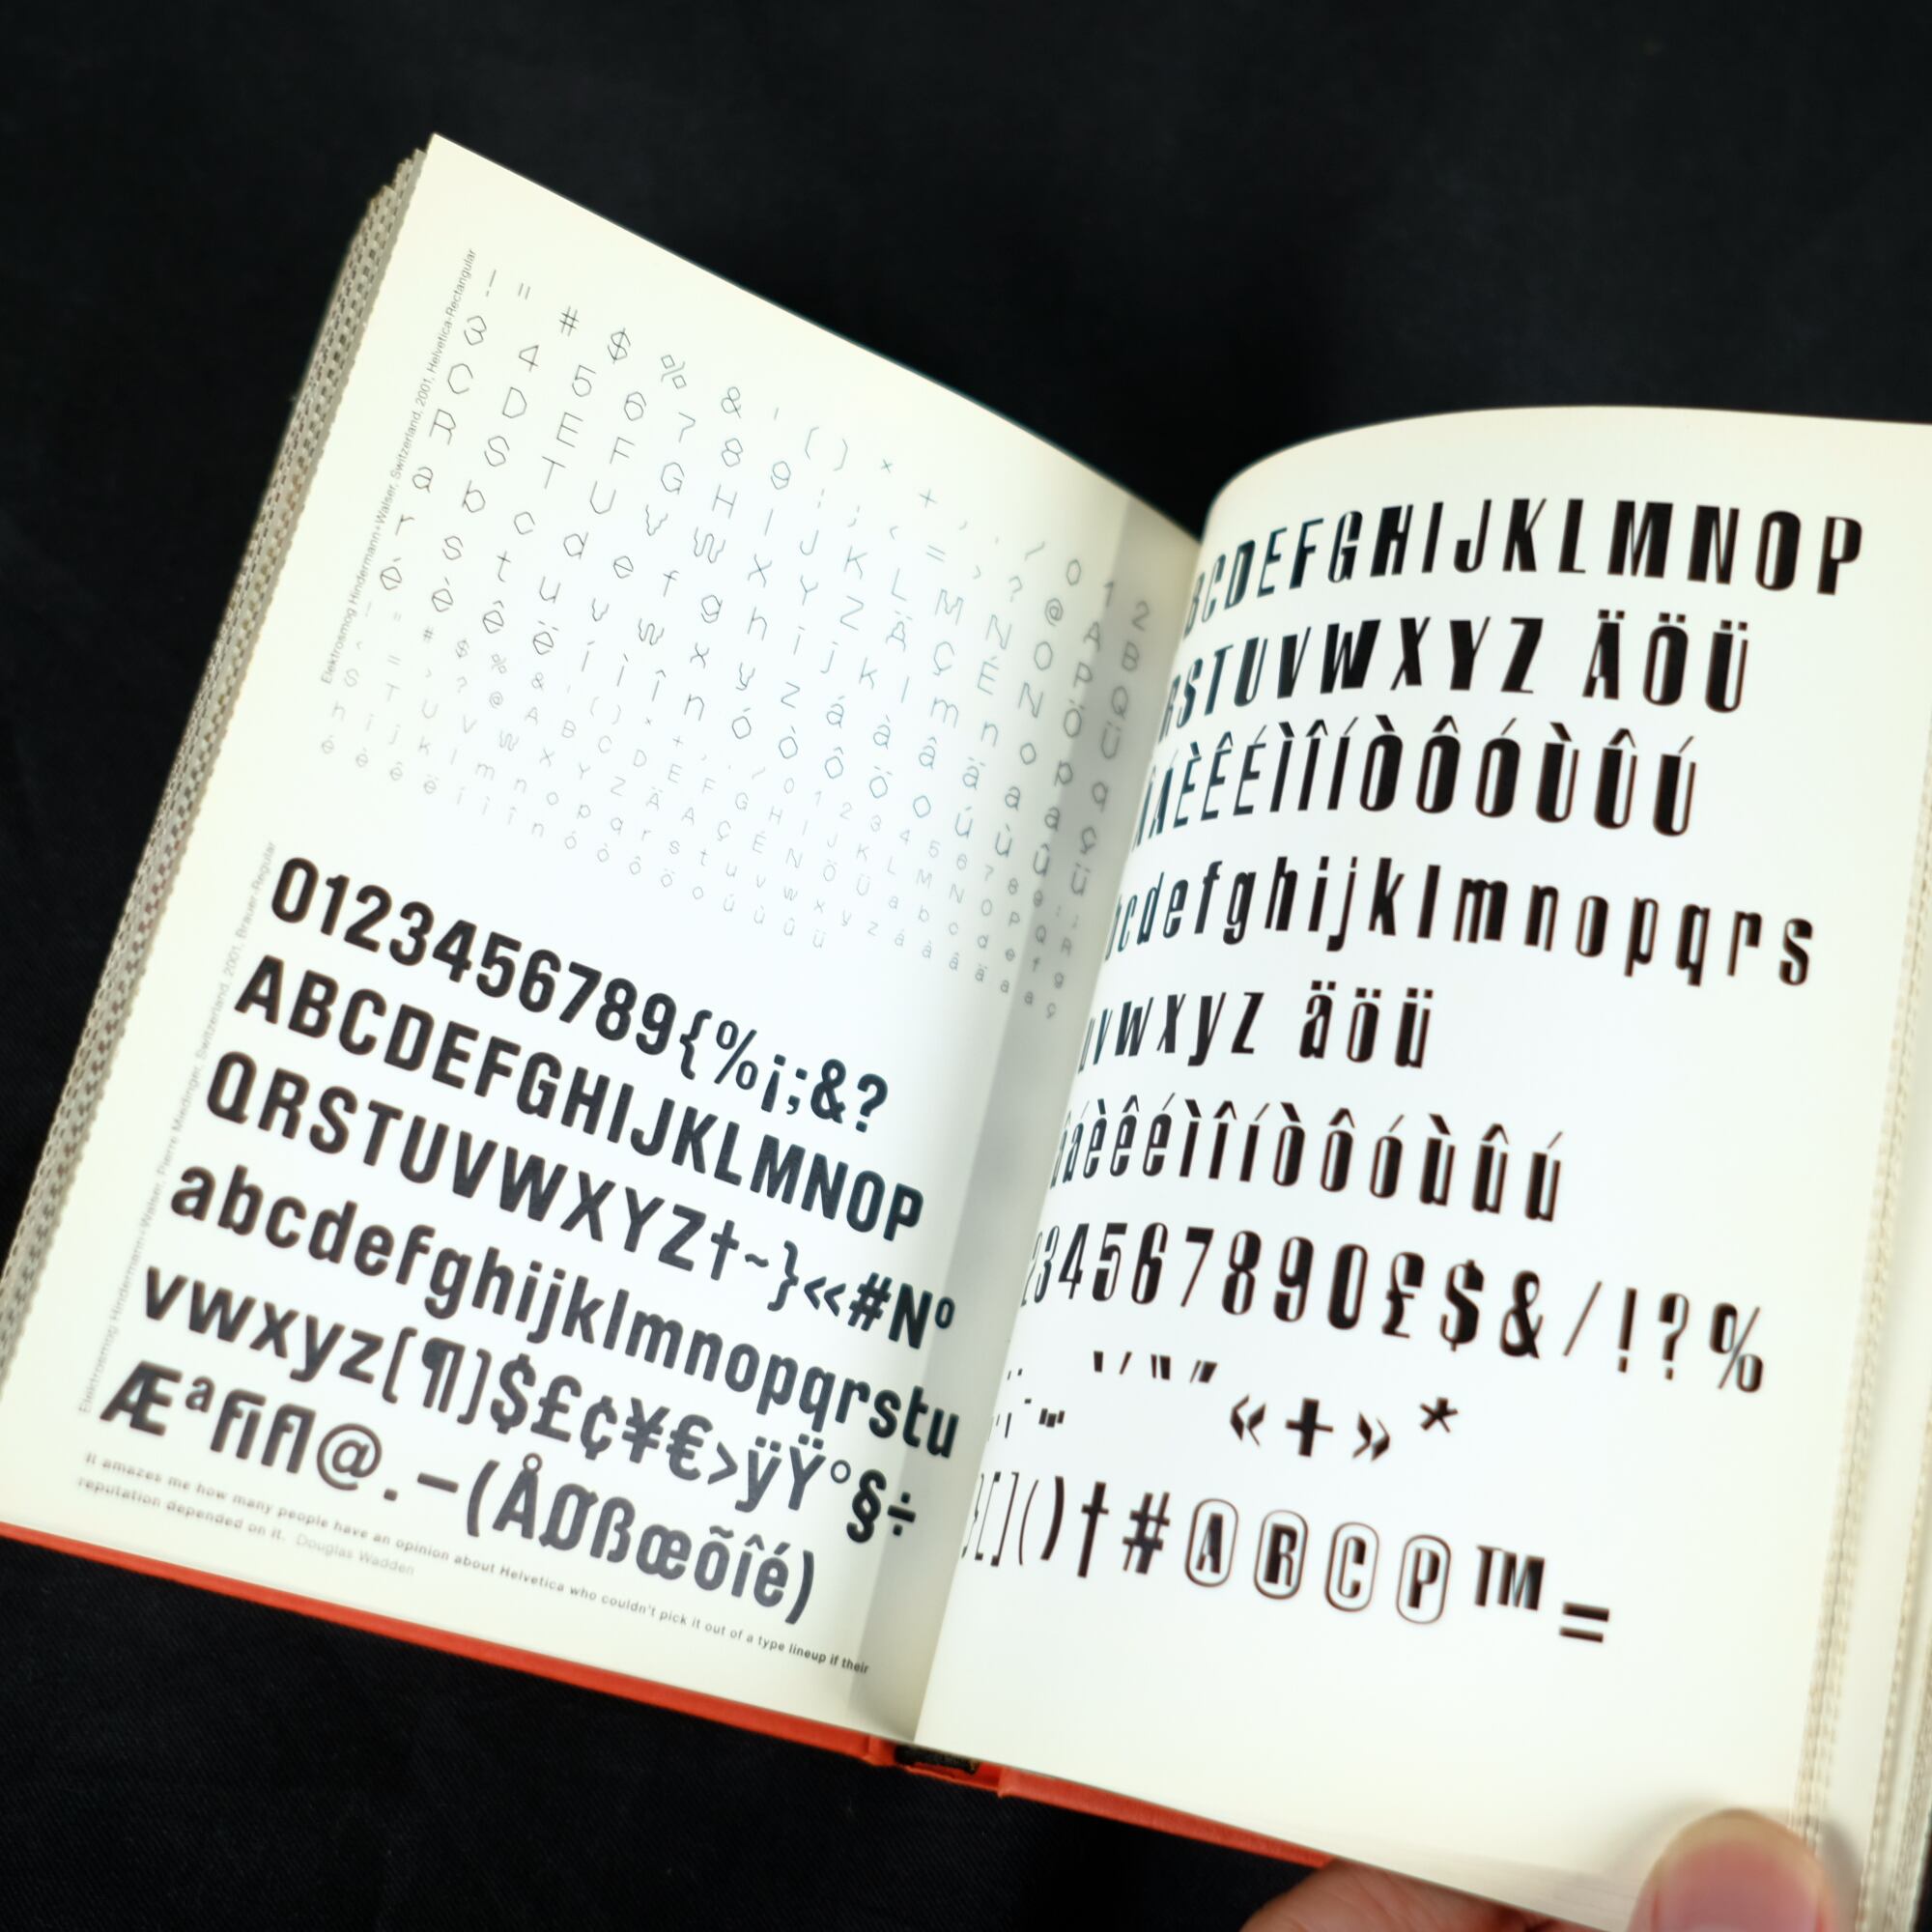 Elektrosmog Hindermann+Walser, Switzerland, 2001, Helvetica-Rectangular
! " # $ % & ' ( ) × + , . / 0 1 2
3 4 5 6 7 8 9 : ; < = > ? @ A B
C D E F G H I J K L M N O P Q
R S T U V W X Y Z Ä Ç É Ñ Ö Ü
a b c d e f g h i j k l m n o p q
r s t u v w x y z á à â ä
é è ê ë í ì î ñ ó ò ô ö o ú ù û ü
Elektrosmog Hindermann+Walser, Pierre Miedinger, Switzerland, 2001, Brauer-Regular
0123456789{%¡;&?
ABCDEFGHIJKLMNOP
QRSTUVWXYZ†~}«#Nº
abcdefghijklmnopqrstu
vwxyz[¶]$£¢¥€>ÿŸ°§÷
Æªfifl@.–(ÅØßœõîé)
It amazes me how many people have an opinion about Helvetica who couldn't pick it out of a type lineup if their
reputation depended on it. Douglas Wadden
BCDEFGHIJKLMNOP
RSTUVWXYZ ÄÖÜ
ÁÈÊÉÌÎÍÒÔÓÙÛÚ
cdefghijklmnopqrs
uvwxyz äöü
âáèêéìîíòôóùûú
234567890£$&/!?%
« + » *
[]()†#ⒶⓇⒸⓅ™=